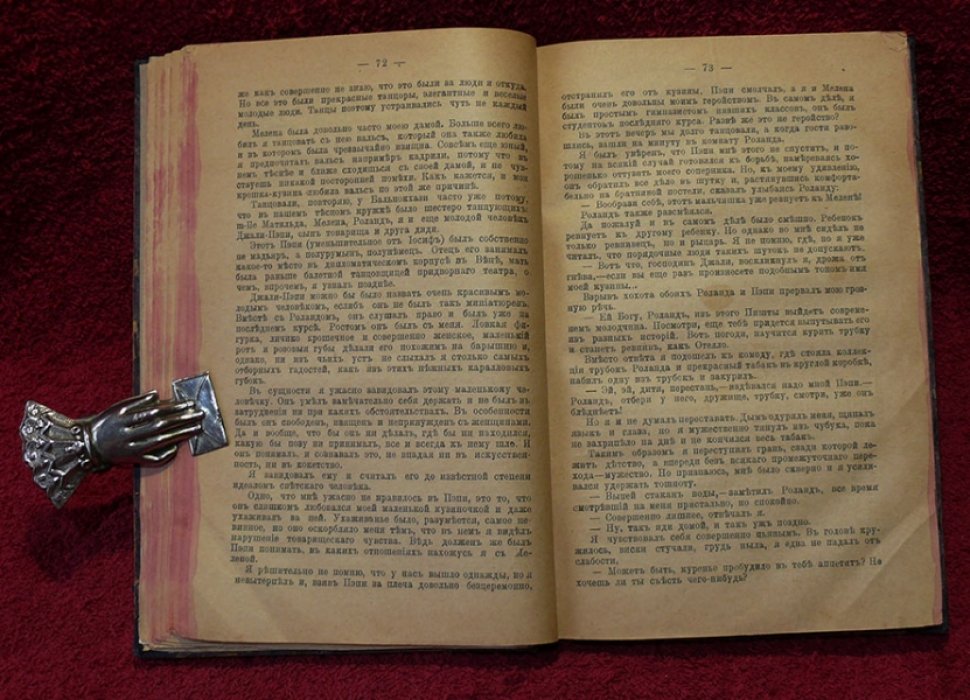 — 72 —
же какъ совершенно не знаю, что это были за люди и откуда.
Но все это были прекрасные танцоры, элегантные и веселые
молодые люди. Танцы поэтому устраивались чуть не каждый
день.
Мелена была довольно часто моею дамой. Больше всего лю-
билъ я танцовать съ нею вальсъ, который она также любила
и въ которомъ была чрезвычайно изящна. Совсѣмъ еще юный,
я предпочиталъ вальсъ напримѣръ кадрили, потому что въ
немъ тѣснѣе и ближе сходишься съ своей дамой, и не чув-
ствуешь никакой посторонней помѣхи. Какъ кажется, и моя
крошка-кузина любила вальсъ по этой же причинѣ.
Танцовали, повторяю, у Бальнокхази часто уже потому,
что въ нашемъ тѣсномъ кружкѣ было шестеро танцующихъ:
m-lle Матильда, Мелена, Роландъ, я и еще молодой человѣкъ
Джали-Пэпи, сынъ товарища и друга дяди.
Этотъ Пэпи (уменьшительное отъ Іосифъ) былъ собственно
не мадьяръ, а полурумынъ, полунѣмецъ. Отецъ его занималъ
какое-то мѣсто въ дипломатическомъ корпусѣ въ Вѣнѣ, мать
была раньше балетной танцовщицей придворнаго театра, о
чемъ, впрочемъ, я узналъ позднѣе.
Джали-Пэпи можно бы было назвать очень красивымъ мо-
лодымъ человѣкомъ, еслибъ онъ не былъ такъ миніатюренъ.
Вмѣстѣ съ Роландомъ, онъ слушалъ право и былъ уже на
послѣднемъ курсѣ. Ростомъ онъ былъ съ меня. Ловкая фи-
гурка, личико крошечное и совершенно женское, маленькій
ротъ и розовыя губы дѣлали его похожимъ на барышню и,
однако, ни изъ чьихъ устъ не слыхалъ я столько самыхъ
отборныхъ гадостей, какъ изъ этихъ нѣжныхъ каралловыхъ
губокъ.
Въ сущности я ужасно завидовалъ этому маленькому ча-
ловѣчку. Онъ умѣлъ замѣчательно себя держать и не былъ въ
затрудненіи ни при какихъ обстоятельствахъ. Въ особенности
былъ онъ свободенъ, изященъ и непринужденъ съ женщинами.
Да и вообще, что бы онъ ни дѣлалъ, гдѣ бы ни находился,
какую бы позу ни принималъ, все и всегда къ нему шло. И
онъ понималъ и сознавалъ это, не впадая ни въ искусствен-
ность, ни въ кокетство.
Я завидовалъ ему и считалъ его до извѣстной степени
идеаломъ свѣтскаго человѣка.
Одно, что мнѣ ужасно не нравилось въ Пэпи, это то, что
онъ слишкомъ любовался моей маленькой кузиночкой и даже
ухаживалъ за ней. Ухаживанье было, разумѣется, самое не-
винное, но оно оскорбляло меня тѣмъ, что въ немъ я видѣлъ
нарушеніе товарищескаго чувства. Вѣдь долженъ же былъ
Пэпи понимать, въ какихъ отношеніяхъ нахожусь я съ Ме-
леной.
Я рѣшительно не помню, что у насъ вышло однажды, но я
невытерпѣлъ и, взявъ Пэпи за плеча довольно безцеремонно,
— 73 —
отстранилъ его отъ кузины. Пэпи смолчалъ, а я и Мелена
были очень довольны моимъ геройствомъ. Въ самомъ дѣлѣ, я
былъ простымъ гимназистомъ низшихъ классовъ, онъ былъ
студентомъ послѣдняго курса. Развѣ же это не геройство?
Въ этотъ вечеръ мы долго танцовали, а когда гости разо-
шлись, зашли на минуту въ комнату Роланда.
Я былъ увѣренъ, что Пэпи мнѣ этого не спуститъ, и по-
тому на всякій случай готовился къ борьбѣ, намѣреваясь хо-
рошенько оттузать моего соперника. Но, къ моему удивленію,
онъ обратилъ все дѣло въ шутку и, растянувшись комфорта-
бельно на братниной постели, сказалъ улыбаясь Роланду:
— Вообрази себѣ, этотъ мальчишка уже ревнуетъ къ Меленѣ!
Роландъ также разсмѣялся.
Да пожалуй и въ самомъ дѣлѣ было смѣшно. Ребенокъ
ревнуетъ къ другому ребенку. Но однако во мнѣ сидѣлъ не
только ревнивецъ, но и рыцарь. Я не помню, гдѣ, но я уже
читалъ, что порядочные люди такихъ шутокъ не допускаютъ.
— Вотъ что, господинъ Джали, воскликнулъ я, дрожа отъ
гнѣва,—если вы еще разъ произнесете подобнымъ тономъ имя
моей кузины...
Взрывъ хохота обоихъ Роланда и Пэпи прервалъ мою гроз-
ную рѣчь.
— Ей Богу, Роландъ, изъ этого Пишты выйдетъ современ-
немъ молодчина. Посмотри, еще тебѣ придется выпутывать его
изъ разныхъ исторій. Вотъ погоди, научится курить трубку
и станетъ ревнивъ, какъ Отелло.
Вмѣсто отвѣта я подошелъ къ комоду, гдѣ стояла коллек-
ція трубокъ Роланда и прекрасный табакъ въ круглой коробкѣ,
набилъ одну изъ трубокъ и закурилъ.
— Эй, эй, дитя, перестань,—надѣвался надо мной Пэпи.—
Роландъ, отбери у него, дружище, трубку, смотри, уже онъ
блѣднѣетъ!
Но я и не думалъ переставать. Дымъ одурилъ меня, щипалъ
языкъ и глаза, но я мужественно тянулъ изъ чубука, пока
не захрипѣло на днѣ и не кончился весь табакъ.
Такимъ образомъ я переступилъ грань, свади которой ле-
житъ дѣтство, а впереди безъ всякаго промежуточнаго пере-
хода—мужество. Но признаюсь, мнѣ было скверно и я усили-
вался удержать тошноту.
— Выпей стаканъ воды,—замѣтилъ Роландъ, все время
смотрѣвшій на меня пристально, но спокойно.
— Совершенно лишнее, отвѣчалъ я.
— Ну, такъ иди домой, и такъ ужъ поздно.
Я чувствовалъ себя совершенно пьянымъ. Въ головѣ кру-
жилось, виски стучали, грудь ныла, я едва не падалъ отъ
слабости,
— Можетъ быть, куренье пробудило въ тебѣ аппетитъ? Не
хочешь ли ты съѣсть чего-нибудь?